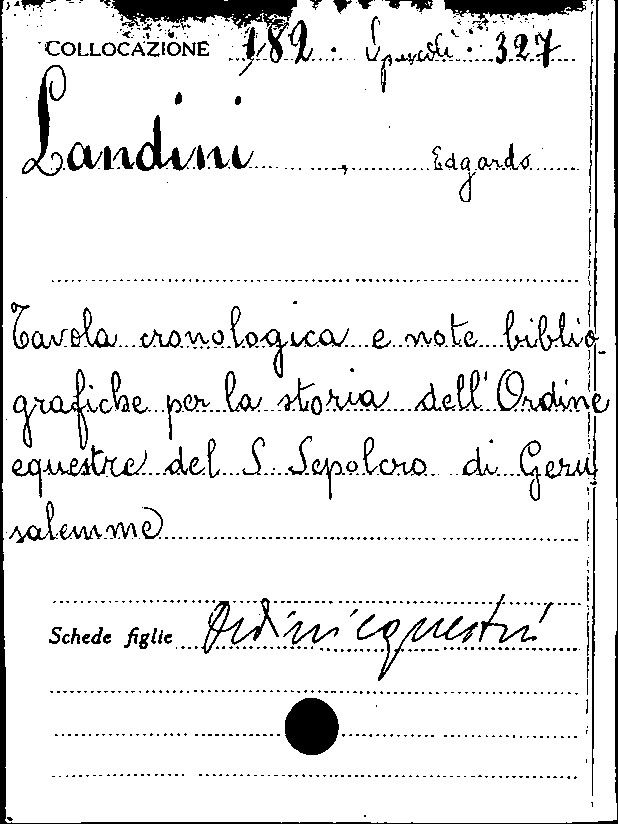 COLLOCAZIONE 182. Spreoli. 327
Landini, Edgardo
Tavola cronologica e note biblio-
grafiche per la storia dell'Ordine
equestre del S. Sepolcro di Geru
salemme
Schede figlie Ordini equestri